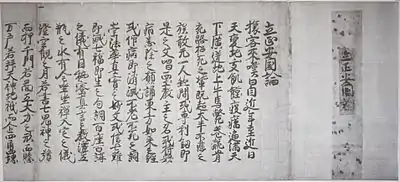 立正安國論
立正安國論
旅客来嘆曰自近年至近日
天變地夭飢饉疫癘遍満天
下廣迸地上牛馬斃巷骸骨
充路招死之輩既超大半不悲之
族敢無一人然間或専利剣即
是之文唱西土教主之名或持衆
病悉除之願誦東方如来之経
或仰病即消滅不老不死之詞
崇法華真實之妙文或信七難
即滅七福即生之句調百座百講
之儀有因秘密真言之教灑五
瓶之水有全坐禅入定之儀
澄空觀之月若書七鬼神之号
而押千門若圖五大力之形而懸
万戸若拝天神地祇而企四角四堺